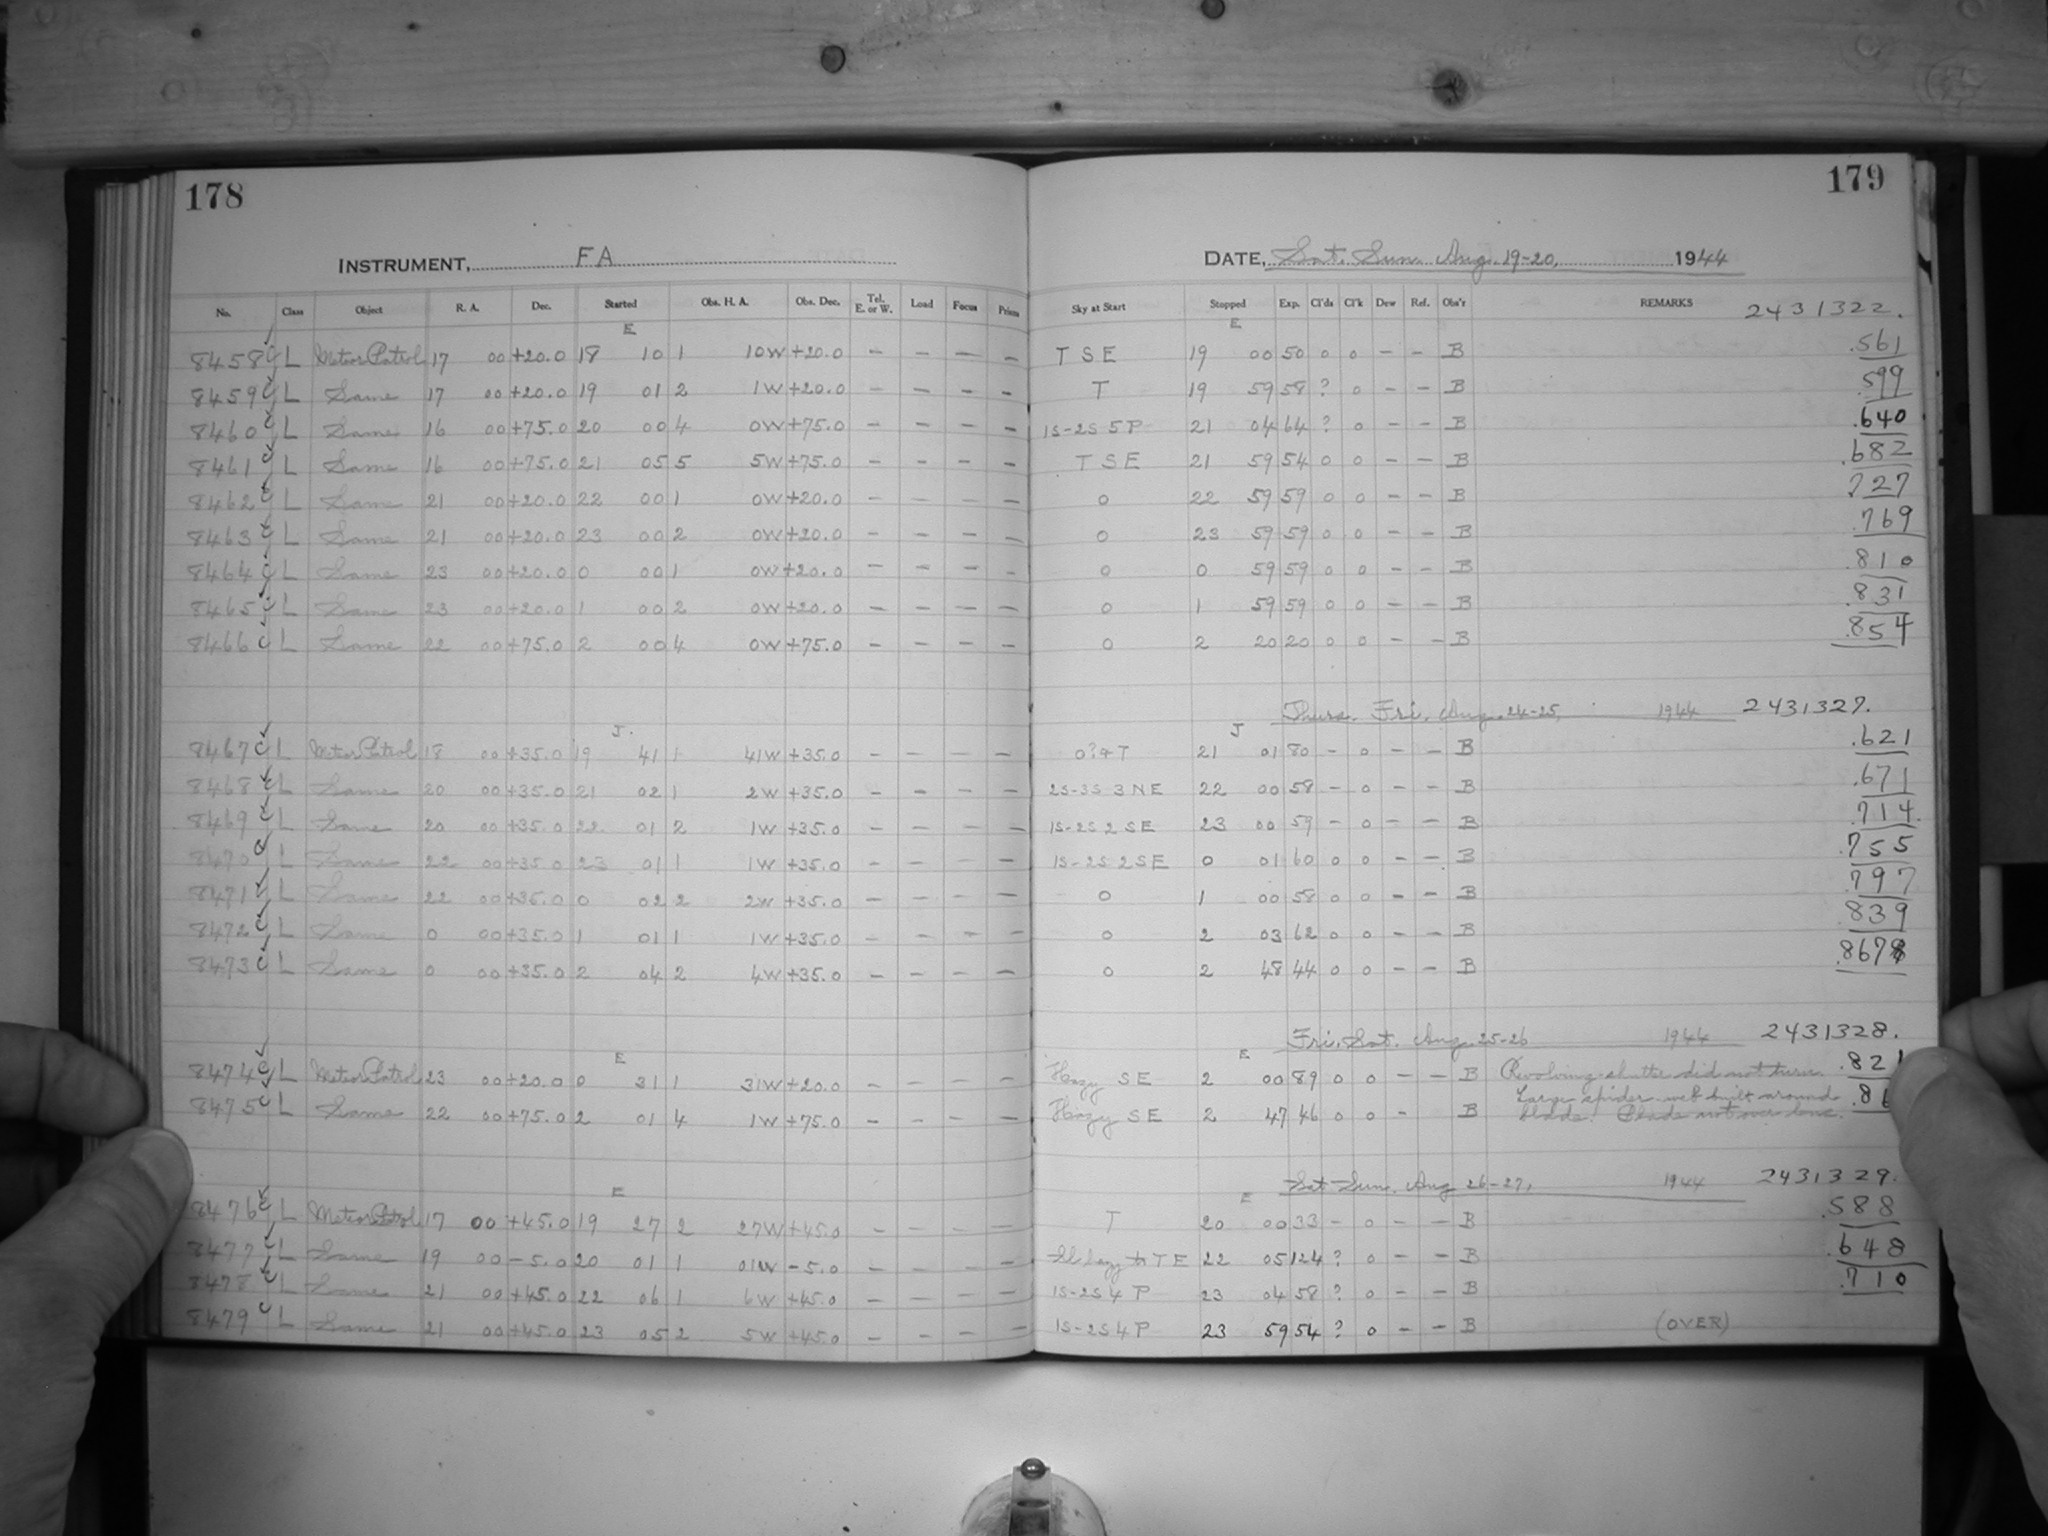 178
INSTRUMENT, FA
No. Class Object R. A. Dec. Started Obs. H. A. Obs. Dec. Tel. E. or W. Load Focus Prisms
E
8458 C L Meteor Patrol 17 00 +20.0 18 10 1 10W +20.0 — — — —
8459 C L Same 17 00 +20.0 19 01 2 1W +20.0 — — — —
8460 C L Same 16 00 +75.0 20 00 4 0W +75.0 — — — —
8461 C L Same 16 00 +75.0 21 05 5 5W +75.0 — — — —
8462 C L Same 21 00 +20.0 22 00 1 0W +20.0 — — — —
8463 C L Same 21 00 +20.0 23 00 2 0W +20.0 — — — —
8464 C L Same 23 00 +20.0 0 00 1 0W +20.0 — — — —
8465 C L Same 23 00 +20.0 1 00 2 0W +20.0 — — — —
8466 C L Same 22 00 +75.0 2 00 4 0W +75.0 — — — —
J.
8467 C L Meteor Patrol 18 00 +35.0 19 41 1 41W +35.0 — — — —
8468 C L Same 20 00 +35.0 21 02 1 2W +35.0 — — — —
8469 C L Same 20 00 +35.0 22 01 2 1W +35.0 — — — —
8470 C L Same 22 00 +35.0 23 01 1 1W +35.0 — — — —
8471 C L Same 22 00 +35.0 0 02 2 2W +35.0 — — — —
8472 C L Same 0 00 +35.0 1 01 1 1W +35.0 — — — —
8473 C L Same 0 00 +35.0 2 04 2 4W +35.0 — — — —
E
8474 C L Meteor Patrol 23 00 +20.0 0 31 1 31W +20.0 — — — —
8475 C L Same 22 00 +75.0 2 01 4 1W +75.0 — — — —
E
8476 C L Meteor Patrol 17 00 +45.0 19 27 2 27W +45.0 — — — —
8477 C L Same 19 00 -5.0 20 01 1 01W -5.0 — — — —
8478 C L Same 21 00 +45.0 22 06 1 6W +45.0 — — — —
8479 C L Same 21 00 +45.0 23 05 2 5W +45.0 — — — —
179
DATE, Sat. Sun. Aug. 19-20, 1944
Sky at Start Stopped Exp. Cl'ds Cl'k Dew Ref. Obs'r REMARKS 2431322.
E
T S E 19 00 50 0 0 — — B .561
T 19 59 58 ? 0 — — B .599
1S-2S 5P 21 04 64 ? 0 — — B .640
T S E 21 59 54 0 0 — — B .682
0 22 59 59 0 0 — — B .727
0 23 59 59 0 0 — — B .769
0 0 59 59 0 0 — — B .810
0 1 59 59 0 0 — — B .831
0 2 20 20 0 0 — — B .854
Thurs. Fri. Aug. 24-25, 1944 2431327.
J
0?+T 21 01 80 — 0 — — B .621
2S-3S 3NE 22 00 58 — 0 — — B .671
1S-2S 2SE 23 00 59 — 0 — — B .714
1S-2S 2SE 0 01 60 0 0 — — B .755
0 1 00 58 0 0 — — B .797
0 2 03 62 0 0 — — B .839
0 2 48 44 0 0 — — B .867
Fri. Sat. Aug. 25-26 1944 2431328.
E
Hazy SE 2 00 89 0 0 — — B Revolving shutter did not turn. .821
Large spider web built around
Hazy SE 2 47 46 0 0 — B blade. .86
E
Sat Sun. Aug 26-27, 1944 2431329.
T 20 00 33 — 0 — — B .588
Sl hazy to T E 22 05 124 ? 0 — — B .648
1S-2S 4P 23 04 58 ? 0 — — B .710
1S-2S 4P 23 59 54 ? 0 — — B (OVER)